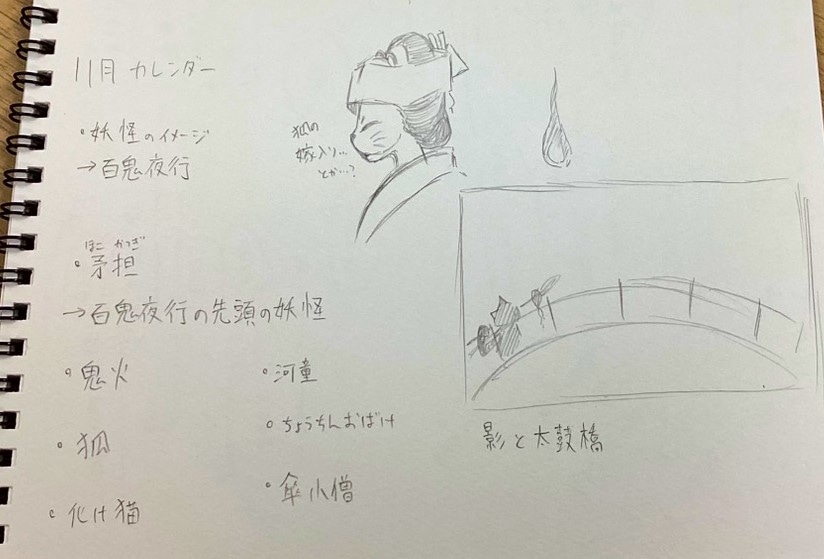 11月 カレンダー
・妖怪のイメージ
→百鬼夜行
ほこ かつぎ
・矛担
→百鬼夜行の先頭の妖怪
・鬼火
・狐
・化け猫
・河童
・ちょうちんおばけ
・傘小僧
狐の
嫁入り…
とか…?
影と太鼓橋